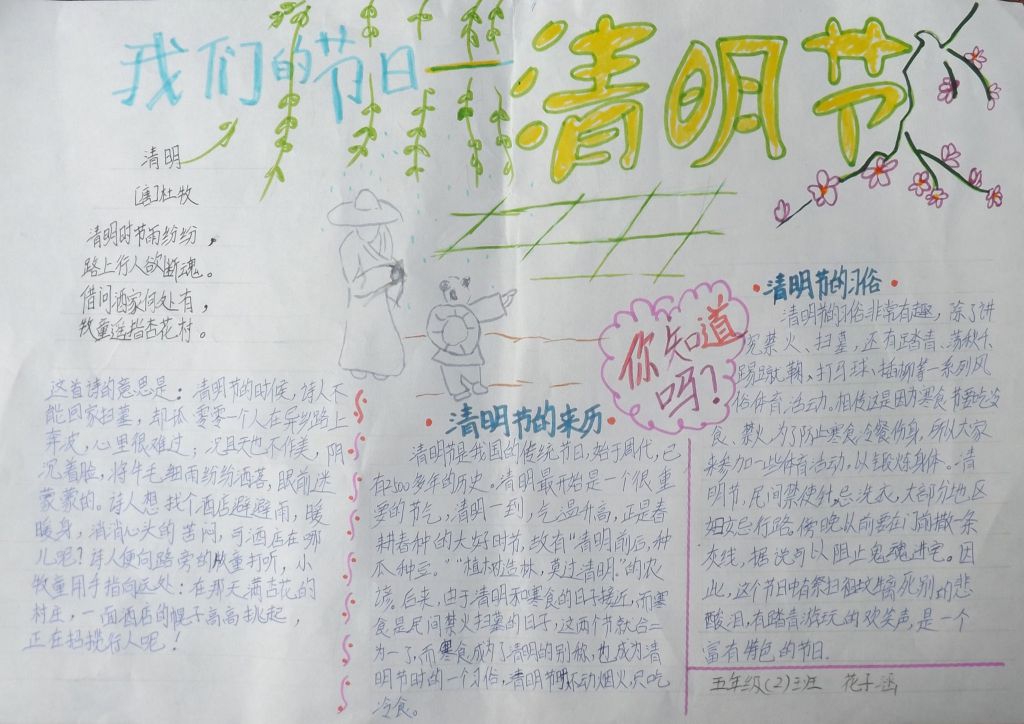 我们的节日
清明节
清明
[唐]杜牧
清明时节雨纷纷，
路上行人欲断魂。
借问酒家何处有，
牧童遥指杏花村。
这首诗的意思是：清明节的时候，诗人不
能回家扫墓，却孤零零一个人在异乡路上
奔波，心里很难过；况且天也不作美，阴
沉着脸，将牛毛细雨纷纷洒落，眼前迷
蒙蒙的。诗人想找个酒店避避雨，暖
暖身，消消心头的苦闷，可酒店在哪
儿呢？诗人便向路旁的牧童打听，小
牧童用手指向远处：在那天满杏花的
村庄，一面酒店的幌子高高挑起，
正在招揽行人呢！
清明节的来历
清明节是我国的传统节日，始于周代，已
有2500多年的历史。清明最开始是一个很重
要的节气，清明一到，气温升高，正是春
耕春种的大好时节，故有“清明前后，种
瓜种豆。”“植树造林，莫过清明。”的农
谚。后来，由于清明和寒食的日子接近，而寒
食是民间禁火扫墓的日子，这两个节就合二
为一了，而寒食成为了清明的别称，也成为清
明节时的一个习俗，清明节时不动烟火，只吃
冷食。
你知道
吗？
清明节的习俗
清明节的习俗非常有趣，除了讲
究禁火、扫墓，还有踏青、荡秋千、
踢蹴鞠、打马球、插柳等一系列风
俗体育活动。相传这是因为寒食节要吃冷
食、禁火，为了防止寒食冷餐伤身，所以大家
来参加一些体育活动，以锻炼身体。清
明节，民间禁使针，忌洗衣，大部分地区
妇女忌行路。傍晚以前要在门前撒一条
灰线，据说可以阻止鬼魂进宅。因
此，这个节日中有祭扫祖坟生离死别的悲
酸泪，有踏青游玩的欢笑声，是一个
富有特色的节日.
五年级(2)班 花